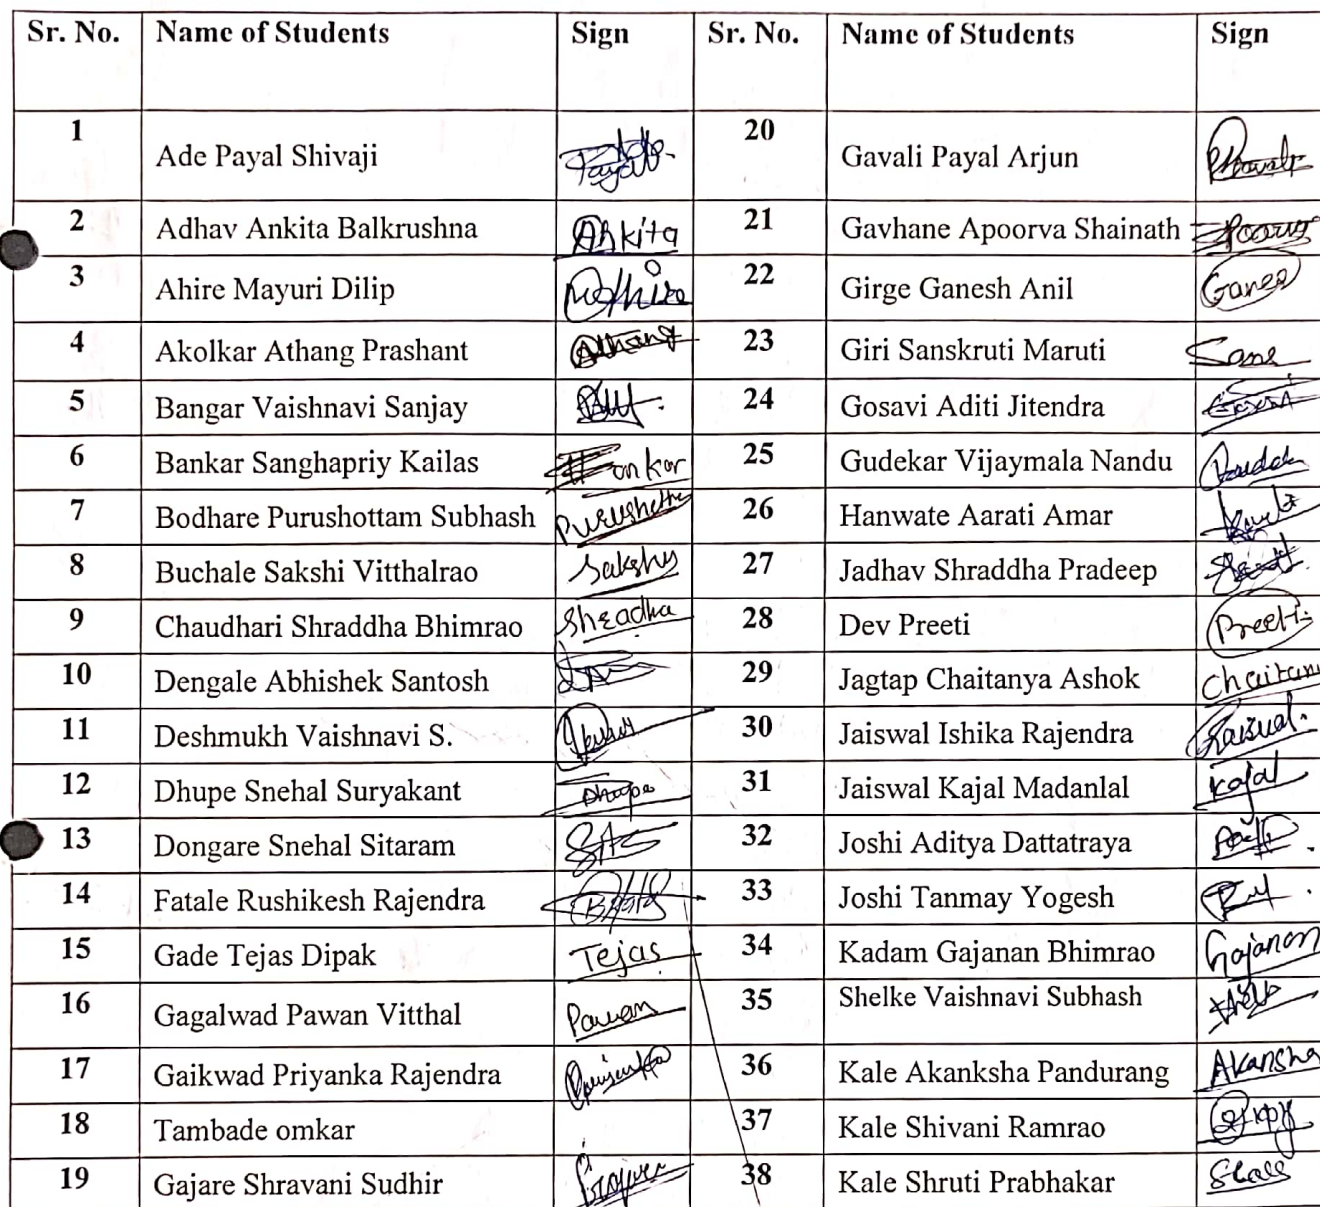 Sr. No. Name of Students Sign Sr. No. Name of Students Sign
1 Ade Payal Shivaji Payal 20 Gavali Payal Arjun
2 Adhav Ankita Balkrushna Ankita 21 Gavhane Apoorva Shainath
3 Ahire Mayuri Dilip 22 Girge Ganesh Anil
4 Akolkar Athang Prashant Athang 23 Giri Sanskruti Maruti
5 Bangar Vaishnavi Sanjay 24 Gosavi Aditi Jitendra
6 Bankar Sanghapriy Kailas 25 Gudekar Vijaymala Nandu
7 Bodhare Purushottam Subhash 26 Hanwate Aarati Amar
8 Buchale Sakshi Vitthalrao 27 Jadhav Shraddha Pradeep
9 Chaudhari Shraddha Bhimrao 28 Dev Preeti Preeti
10 Dengale Abhishek Santosh 29 Jagtap Chaitanya Ashok
11 Deshmukh Vaishnavi S. 30 Jaiswal Ishika Rajendra
12 Dhupe Snehal Suryakant Dhupe 31 Jaiswal Kajal Madanlal Kajal
13 Dongare Snehal Sitaram 32 Joshi Aditya Dattatraya
14 Fatale Rushikesh Rajendra 33 Joshi Tanmay Yogesh
15 Gade Tejas Dipak Tejas 34 Kadam Gajanan Bhimrao Gajanan
16 Gagalwad Pawan Vitthal Pawan 35 Shelke Vaishnavi Subhash
17 Gaikwad Priyanka Rajendra 36 Kale Akanksha Pandurang Akansha
18 Tambade omkar 37 Kale Shivani Ramrao
19 Gajare Shravani Sudhir 38 Kale Shruti Prabhakar